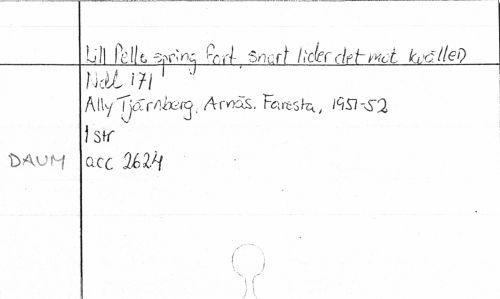 Lill Pelle spring fort, snart lider det mot kvällen
Ndl 171
Ally Tjärnberg, Arnäs. Faresta, 1951-52
1 str
DAUM acc 2624